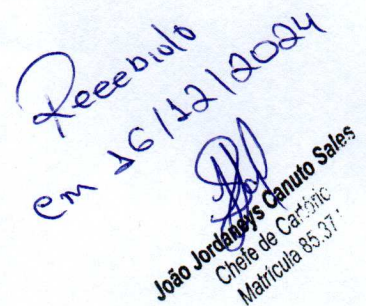 Recebido
em 16/12/2024
João Jordaneys Canuto Sales
Chefe de Cartório
Matrícula 85.37